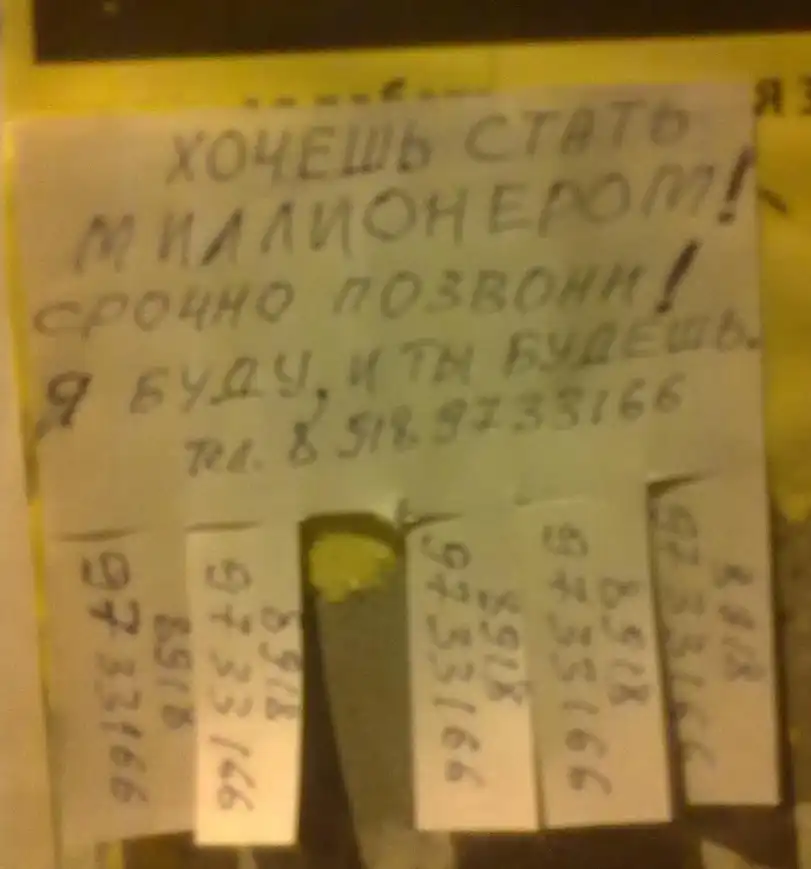 ХОЧЕШЬ СТАТЬ
МИЛЛИОНЕРОМ!
СРОЧНО ПОЗВОНИ!
Я БУДУ, И ТЫ БУДЕШЬ.
тел. 8 918 9733166
8918
9733166
8918
9733166
8918
9733166
8918
9733166
8918
9733166